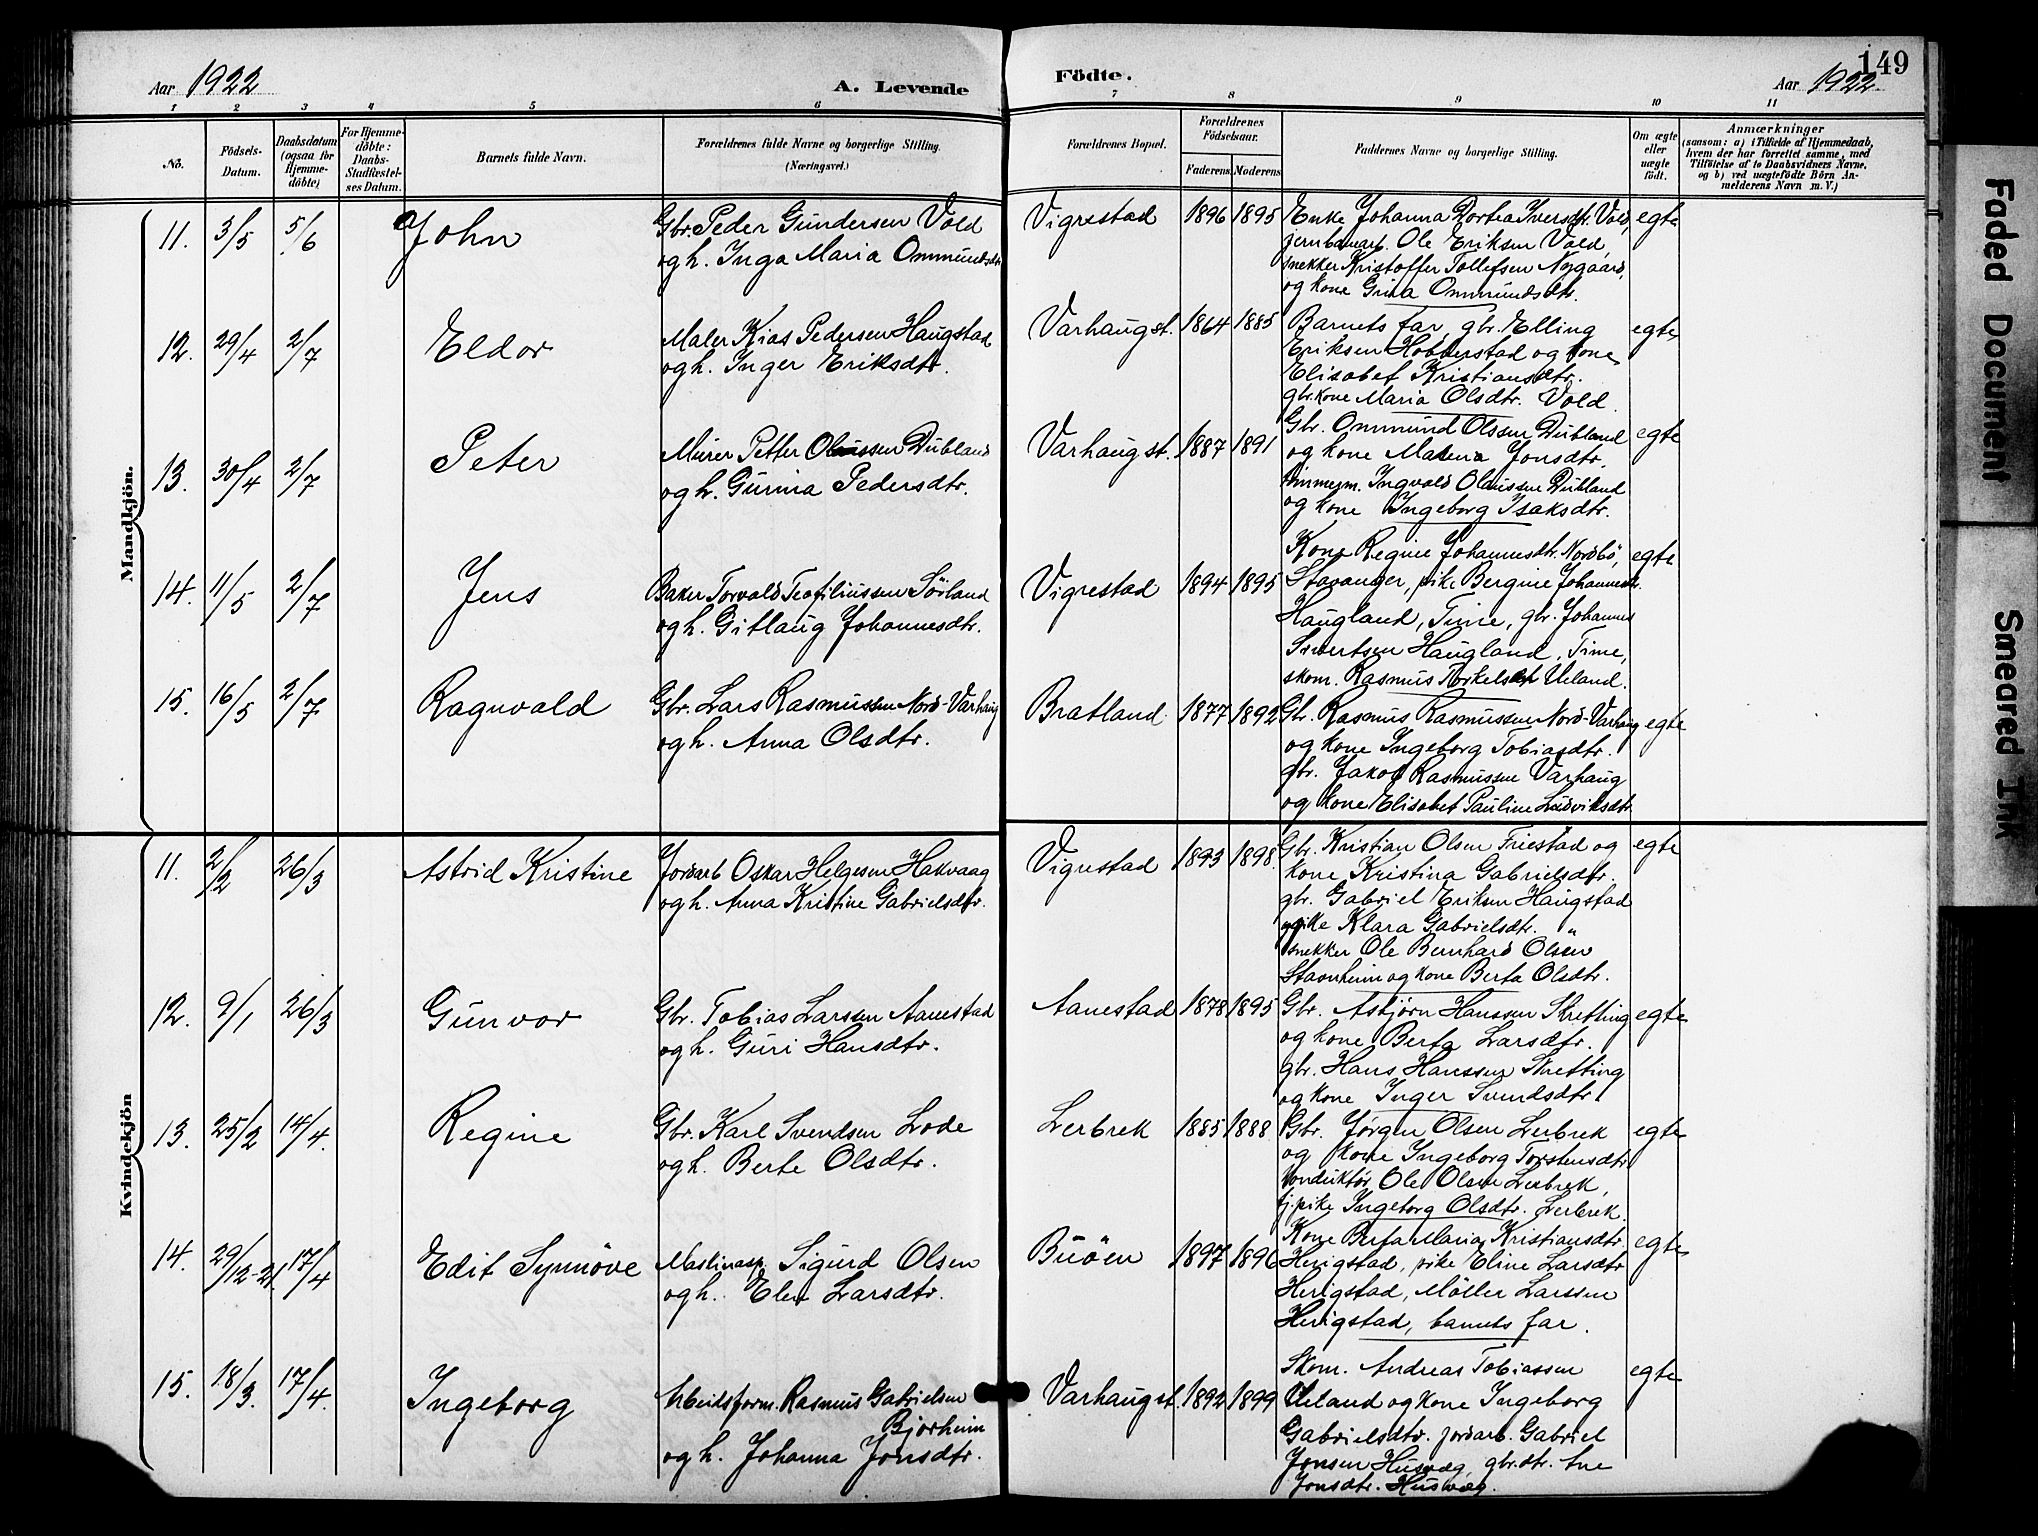 149
Aar 1922
A. Levende
Födte.
Aar 1922
1 2 3 4 5 6 7 8 9 10 11
No.
Födsels-
Datum.
Daabsdatum
(ogsaa for
Hjemme-
döbte)
For Hjemme-
döbte:
Daabs-
Stadfæstel-
ses Datum.
Barnets fulde Navn.
Forældrenes fulde Navne og borgerlige Stilling.
(Næringsvei.)
Forældrenes Bopæl.
Forældrenes
Födselsaar.
Faderens Moderens
Faddernes Navne og borgerlige Stilling.
Om ægte
eller
uægte
födt.
Anmærkninger
(saasom: a) i Tilfælde af Hjemmedaab,
hvem der har forrettet samme, med
Tilföielse af to Daabsvidners Navne,
og b) ved uægtefödte Börn An-
melderens Navn m. V.)
Mandkjön.
11. 3/5 5/6 John
Gbr. Peder Gundersen Vold
og h. Inga Maria Ommundsdtr
Vigrestad 1896 1895
Enke Johanna Dortea Iversdtr. Vold,
jernbanearb. Ole Eriksen Vold,
snekker Kristoffer Tollefsen Nygaard,
og kone Guria Ommundsdtr.
egte
12. 29/4 2/7 Eldor
Maler Kias Pedersen Haugstad
og h. Inger Eriksdtr.
Varhaugst. 1864 1885
Barnets far, gbr. Elling
Eriksen Hobberstad og kone
Elisabet Kristiansdtr.
gbr.kone Maria Olsdtr. Vold.
egte
13. 30/4 2/7 Peter
Murer Petter Olaussen Dubland
og h. Gurina Pedersdtr.
Varhaugst. 1887 1891
Gbr. Ommund Olssen Dubland
og kone Malena Jonsdtr.
timmerm. Ingvald Olaussen Dubland
og kone Ingeborg Isaksdtr.
egte
14. 11/5 2/7 Jens
Baker Torvald Teofiliussen Sörland
og h. Gitlaug Johannesdtr.
Vigrestad 1894 1895
Kone Regine Johannesdtr. Nordbö,
Stavanger, pike Bergine Johannesdtr.
Haugland, Time, gbr. Johannes
Sivertsen Haugland, Time,
skom. Rasmus Torkelsen Ueland.
egte
15. 16/5 2/7 Ragnvald
Gbr. Lars Rasmussen Nord-Varhaug
og h. Anna Olsdtr.
Bratland 1877 1892
Gbr. Rasmus Rasmussen Nord-Varhaug
og kone Ingeborg Tobiasdtr.
gbr. Jakob Rasmussen Varhaug
og kone Elisabet Pauline Ludviksdtr.
egte
Kvindekjön
11. 2/2 26/3 Astrid Kristine
Jordarb Oskar Helgesen Hakvaag
og h. Anna Kristine Gabrielsdtr.
Vigrestad 1893 1898
Gbr. Kristian Olsen Friestad og
kone Kristina Gabrielsdtr.
gbr. Gabriel Eriksen Haugstad
og pike Klara Gabrielsdtr. "
snekker Ole Bernhard Olsen
Stavnheim og kone Berta Olsdtr.
egte
12. 9/1 26/3 Gunvor
Gbr. Tobias Larssen Aanestad
og h. Guri Hansdtr.
Aanestad 1878 1895
Gbr. Asbjörn Hanssen Skretting
og kone Berta Larsdtr.
gbr. Hans Hanssen Skretting
og kone Inger Svendsdtr
egte
13. 25/2 14/4. Regine
Gbr. Karl Svendsen Lode
og h. Berte Olsdtr.
Lerbrek 1885 1888
Gbr. Jörgen Olsen Lerbrek
og kone Ingeborg Torstensdtr
konduktör Ole Olsen Lerbrek,
tj.pike Ingeborg Olsdtr. Lerbrek.
egte
14. 29/12-21 17/4 Edit Synnöve
Maskinasp. Sigurd Olsen
og h. Elen Larsdtr.
Buöen 1897 1896
Kone Berta Maria Kristiansdtr
Herigstad, pike Eline Larsdtr
Herigstad, Möller Larssen
Herigstad, barnets far.
egte
15. 18/3. 17/4. Ingeborg
Arbeidsform. Rasmus Gabrielsen
Bjorheim
og h. Johanna Jonsdtr.
Varhaugst. 1892 1899
Skom. Andreas Tobiassen
Ueland og kone Ingeborg
Gabrielsdtr. jordarb. Gabriel
Jonsen Husvæg, gbr.dtr. Ane
Jonsdtr. Husvæg.
egte
Faded Document
Smeared Ink